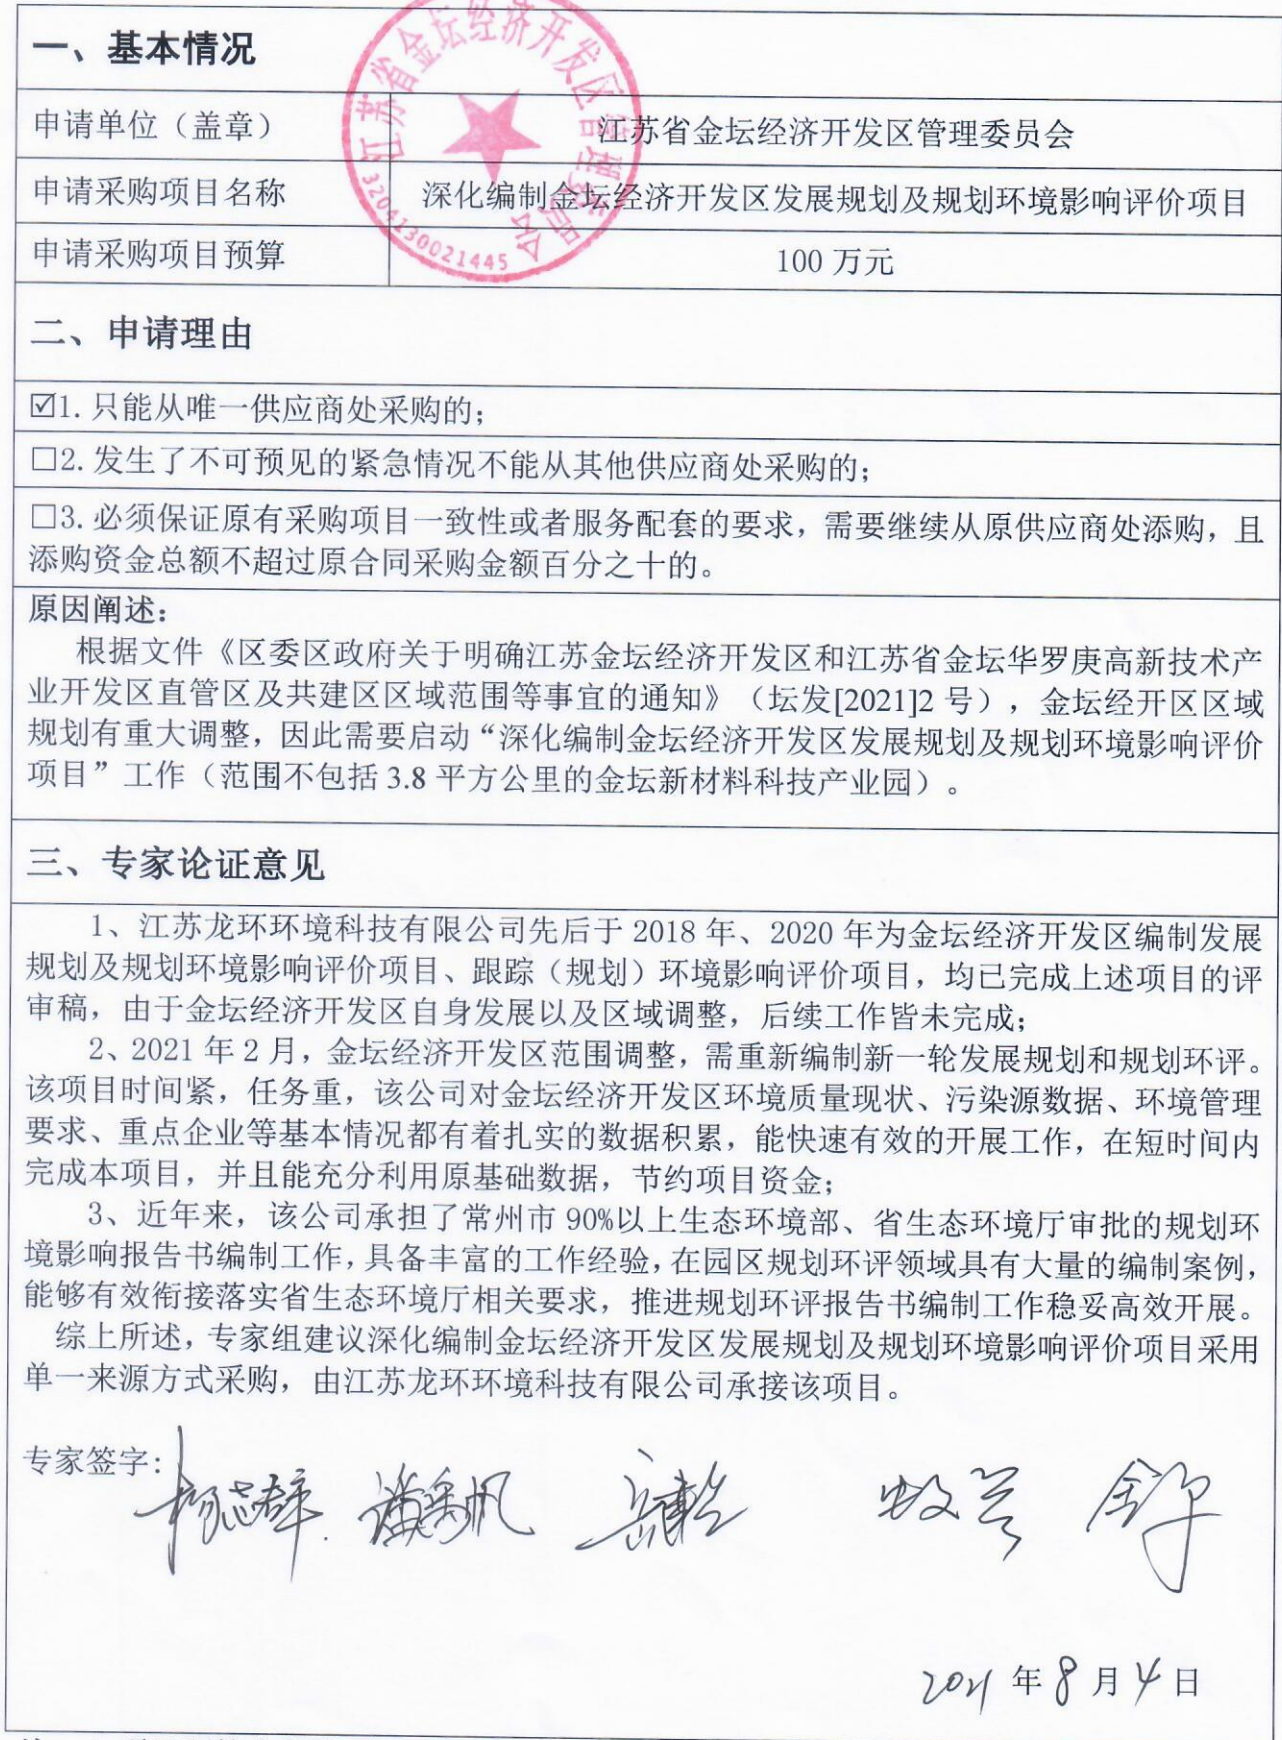 一、基本情况
江苏省金坛经济开发区管理委员会
3204130021445
申请单位（盖章）
江苏省金坛经济开发区管理委员会
申请采购项目名称
深化编制金坛经济开发区发展规划及规划环境影响评价项目
申请采购项目预算
100 万元
二、申请理由
☑1. 只能从唯一供应商处采购的；
□2. 发生了不可预见的紧急情况不能从其他供应商处采购的；
□3. 必须保证原有采购项目一致性或者服务配套的要求，需要继续从原供应商处添购，且
添购资金总额不超过原合同采购金额百分之十的。
原因阐述：
根据文件《区委区政府关于明确江苏金坛经济开发区和江苏省金坛华罗庚高新技术产
业开发区直管区及共建区区域范围等事宜的通知》（坛发[2021]2 号），金坛经开区区域
规划有重大调整，因此需要启动“深化编制金坛经济开发区发展规划及规划环境影响评价
项目”工作（范围不包括 3.8 平方公里的金坛新材料科技产业园）。
三、专家论证意见
1、江苏龙环环境科技有限公司先后于 2018 年、2020 年为金坛经济开发区编制发展
规划及规划环境影响评价项目、跟踪（规划）环境影响评价项目，均已完成上述项目的评
审稿，由于金坛经济开发区自身发展以及区域调整，后续工作皆未完成；
2、2021 年 2 月，金坛经济开发区范围调整，需重新编制新一轮发展规划和规划环评。
该项目时间紧，任务重，该公司对金坛经济开发区环境质量现状、污染源数据、环境管理
要求、重点企业等基本情况都有着扎实的数据积累，能快速有效的开展工作，在短时间内
完成本项目，并且能充分利用原基础数据，节约项目资金；
3、近年来，该公司承担了常州市 90%以上生态环境部、省生态环境厅审批的规划环
境影响报告书编制工作，具备丰富的工作经验，在园区规划环评领域具有大量的编制案例，
能够有效衔接落实省生态环境厅相关要求，推进规划环评报告书编制工作稳妥高效开展。
综上所述，专家组建议深化编制金坛经济开发区发展规划及规划环境影响评价项目采用
单一来源方式采购，由江苏龙环环境科技有限公司承接该项目。
专家签字：
2021 年 8 月 4 日